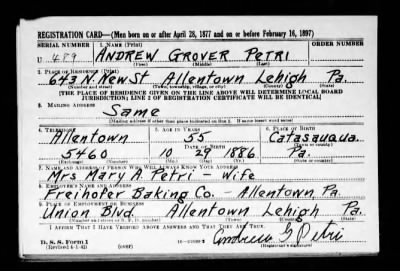 REGISTRATION CARD—(Men born on or after April 28, 1877 and on or before February 16, 1897)
SERIAL NUMBER 1. NAME (Print) ORDER NUMBER
U 489 ANDREW GROVER PETRI
(First) (Middle) (Last)
2. PLACE OF RESIDENCE (Print)
643 N. New St Allentown Lehigh Pa.
(Number and street) (Town, township, village, or city) (County) (State)
[THE PLACE OF RESIDENCE GIVEN ON THE LINE ABOVE WILL DETERMINE LOCAL BOARD
JURISDICTION; LINE 2 OF REGISTRATION CERTIFICATE WILL BE IDENTICAL]
3. MAILING ADDRESS
Same
[Mailing address if other than place indicated on line 2. If same insert word same]
4. TELEPHONE 5. AGE IN YEARS 6. PLACE OF BIRTH
Allentown 55 Catasauqua
DATE OF BIRTH (Town or county)
5460 10 29 1886 Pa.
(Exchange) (Number) (Mo.) (Day) (Yr.) (State or country)
7. NAME AND ADDRESS OF PERSON WHO WILL ALWAYS KNOW YOUR ADDRESS
Mrs Mary A. Petri - Wife
8. EMPLOYER'S NAME AND ADDRESS
Freihofer Baking Co. - Allentown, Pa.
9. PLACE OF EMPLOYMENT OR BUSINESS
Union Blvd. Allentown Lehigh Pa.
(Number and street or R. F. D. number) (Town) (County) (State)
I AFFIRM THAT I HAVE VERIFIED ABOVE ANSWERS AND THAT THEY ARE TRUE.
D. S. S. Form 1
(Revised 4-1-42) (over) Andrew G Petri
(Registrant's signature)